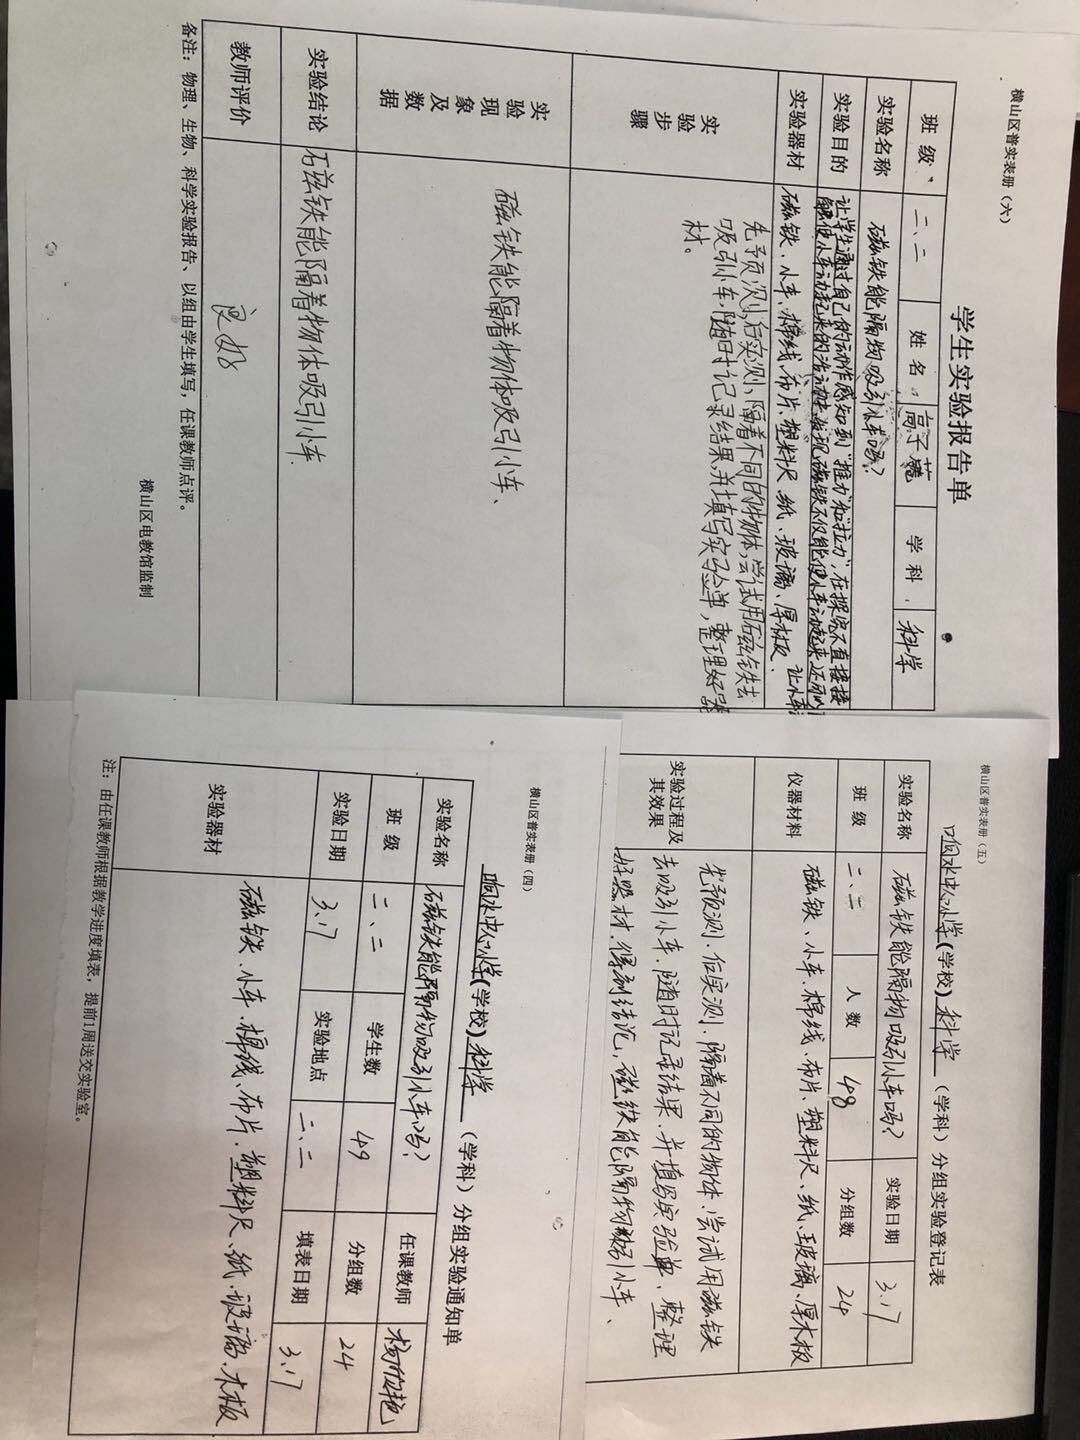 横山区普实表册（六）
学生实验报告单
班级 二、二 姓名 高子 学科 科学
实验名称 磁铁能隔物吸引小车吗？
实验目的 让学生通过自己的动作感知到“推力”和“拉力”，在探究不直接接
触使小车动起来的活动中发现磁铁不仅能使小车动起来还可以
让小车
实验器材 磁铁、小车、棉线、布片、塑料尺、纸、玻璃、厚木板
实验步骤 先预测后实测、隔着不同的物体，尝试用磁铁去
吸引小车，随时记录结果，并填写实验单，整理好器
材。
实验现象及数据 磁铁能隔着物体吸引小车、
实验结论 磁铁能隔着物体吸引小车
教师评价 良好
备注：物理、生物、科学实验报告、以组由学生填写，任课教师点评。
横山区电教馆监制
横山区普实表册（五）
响水中心小学（学校）科学（学科）分组实验登记表
实验名称 磁铁能隔物吸引小车吗？ 实验日期 3.17
班级 二、二 人数 48 分组数 24
仪器材料 磁铁、小车、棉线、布片、塑料尺、纸、玻璃、厚木板
实验过程及其效果 先预测、后实测、隔着不同的物体、尝试用磁铁
去吸引小车、随时记录结果、并填写实验单、整理
好器材、得到结论，磁铁能隔物吸引小车、
横山区普实表册（四）
响水中心小学（学校）科学（学科）分组实验通知单
实验名称 磁铁能隔物吸引小车吗？ 任课教师 杨
班级 二、二 学生数 49 分组数 24
实验日期 3.17 实验地点 二、二 填表日期 3.17
实验器材 磁铁、小车、棉线、布片、塑料尺、纸、玻璃、木板
注：由任课教师根据教学进度填表，提前1周送交实验室。